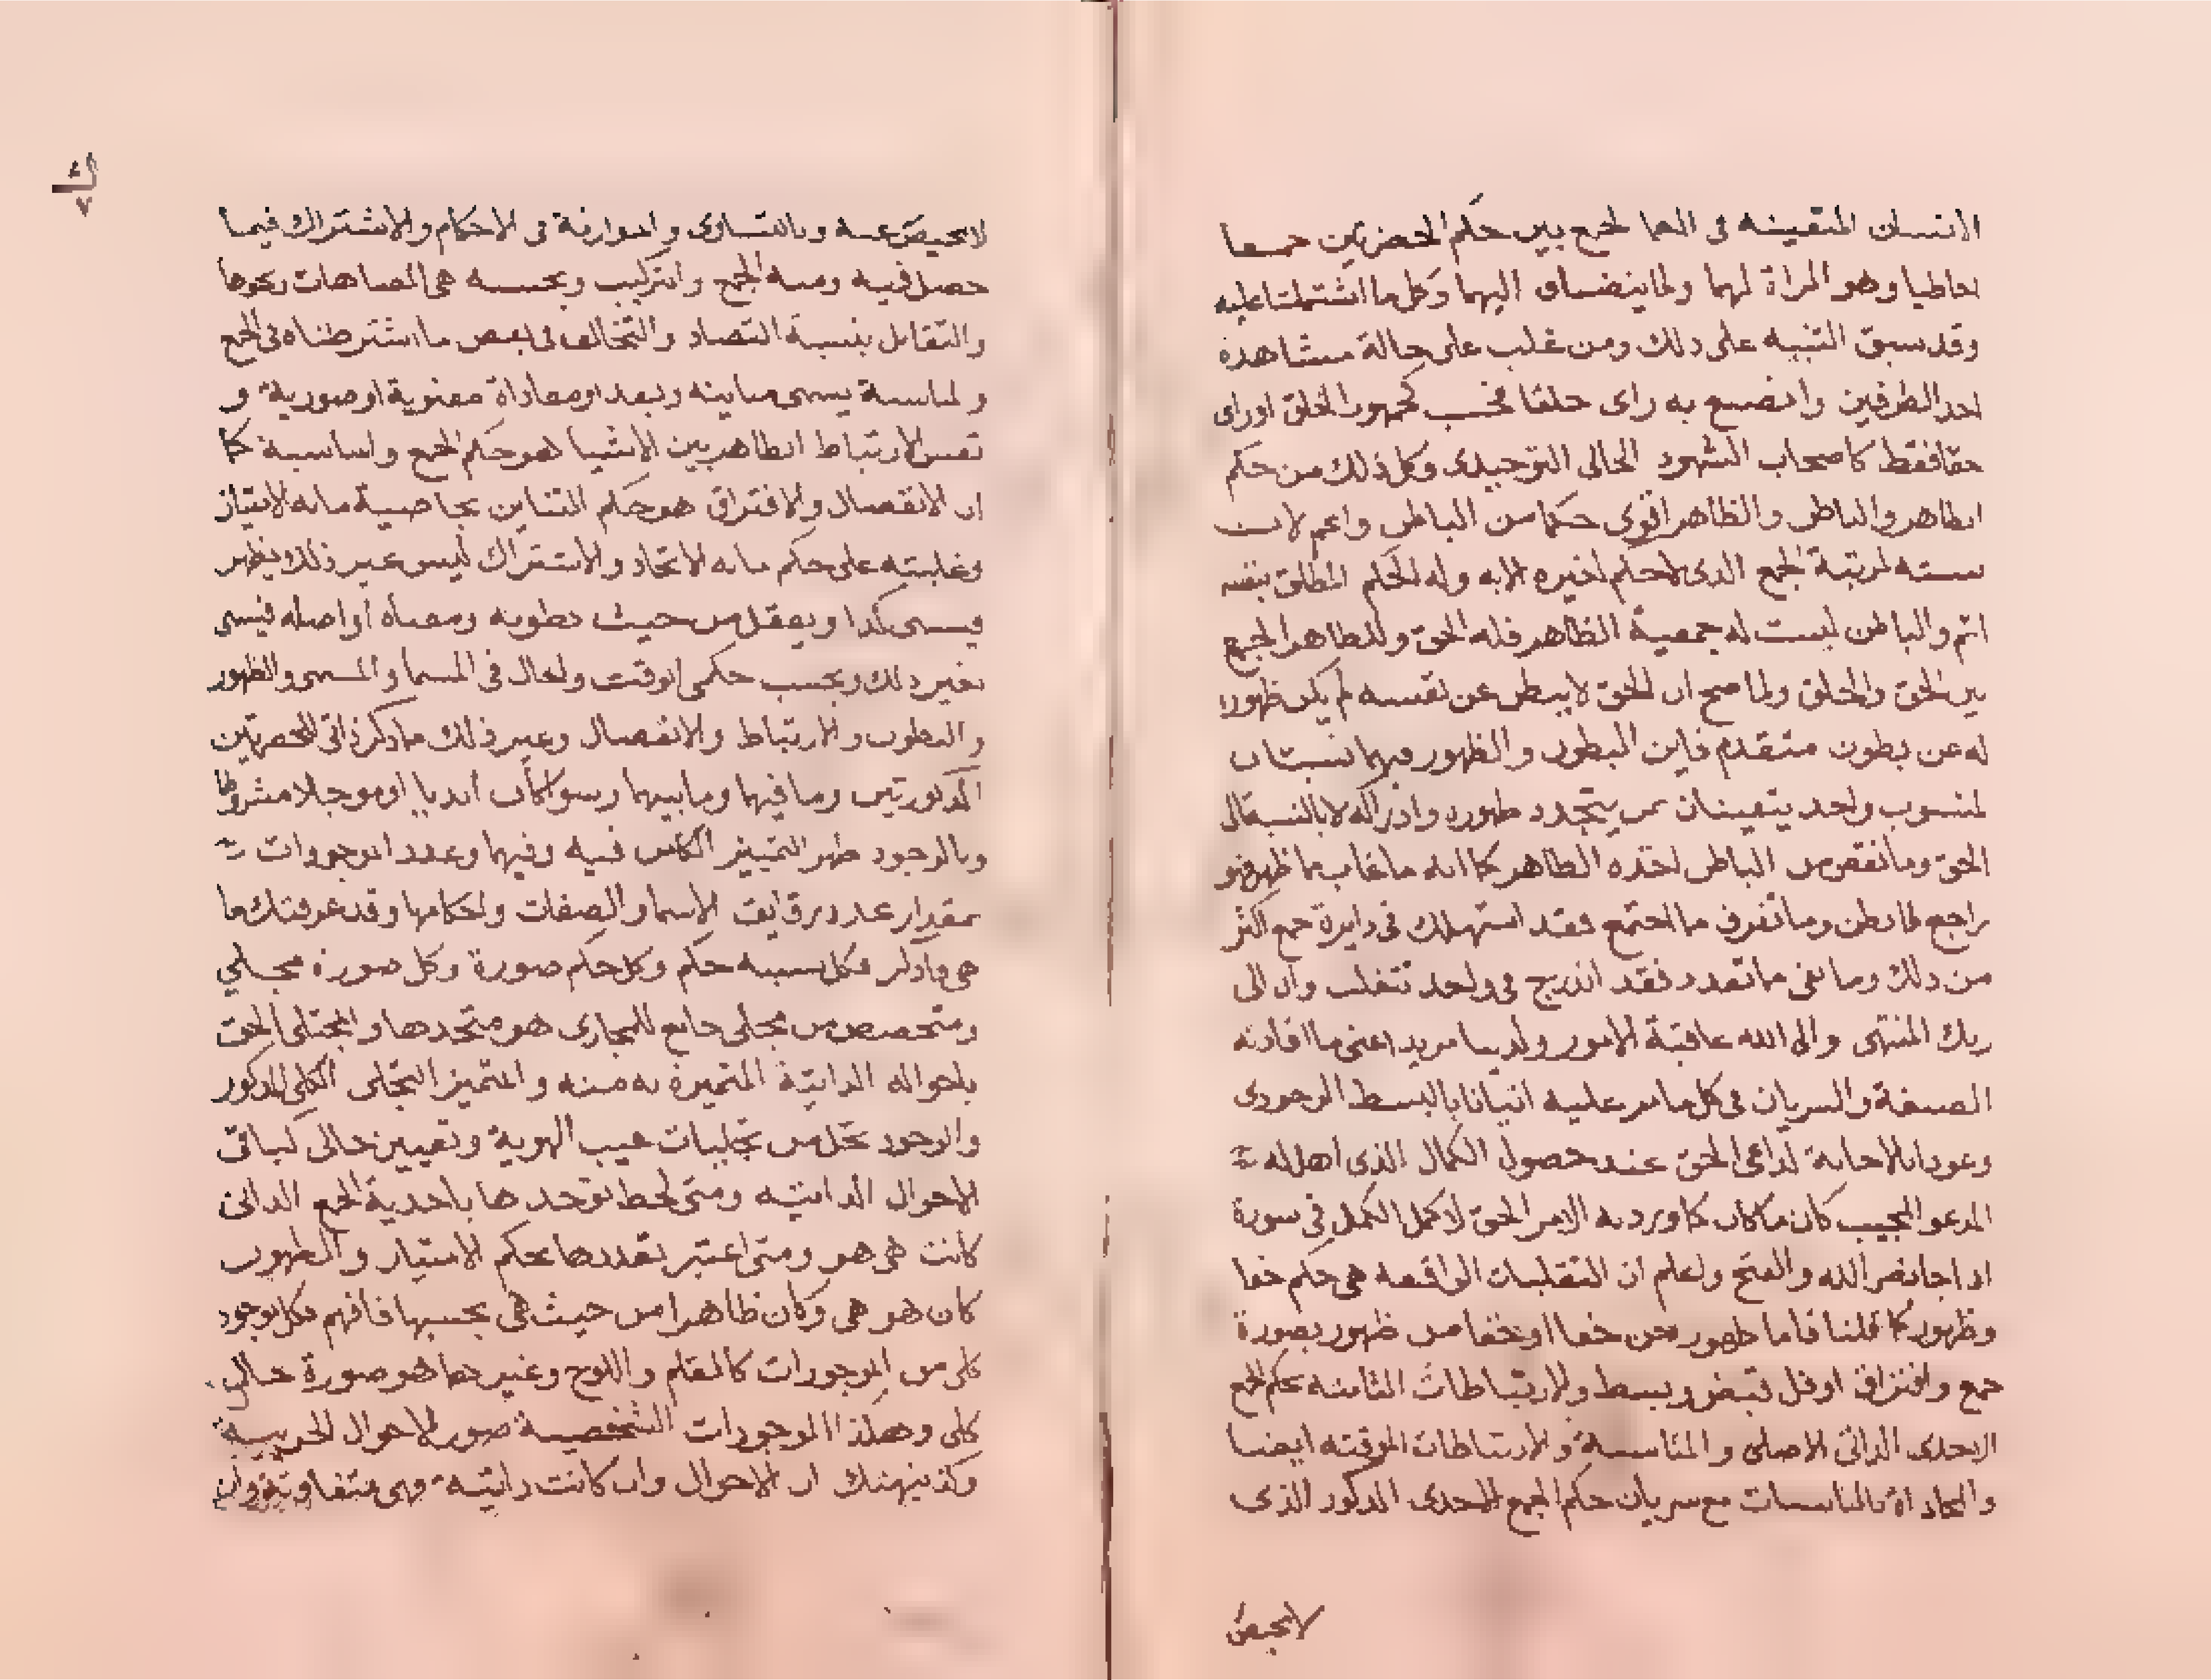 الانسان المتعينه فى العما لجمع بين حكم الحضرتين جمعا
احاطيا وهو المراة لهما ولما ينضاف اليهما وكل ما اشتملتا عليه
وقد سبق التنبيه على ذلك ومن غلب على حالة مشاهدة
احد الطرفين وانصبغ به راى خلقا فحسب كجمهور الخلق او راى
حقا فقط كاصحاب الشهود الحالى التوحيدى وكل ذلك من حكم
الظاهر والباطن والظاهر اقوى حكما من الباطن واعم لان
نسبته لمرتبة الجمع الذى لا حكم لغيره الا به وله الحكم المطلق بنفسه
اتم والباطن ليست له جمعية الظاهر فله الحق وللظاهر الجمع
بين الحق والخلق ولما صح ان الحق لا يبطن عن نفسه لم يكن ظهوره
له عن بطون متقدم فاين البطون والظهور فهما نسبتان
لمنسوب واحد يتعينان بمن يتجدد ظهوره وادراكه لا بالنسبة الى
الحق وما نقص من الباطن اخذه الظاهر كما انه ما غاب مما ظهر فهو
راجع لما بطن وما تفرق مما اجتمع فقد استهلك فى دايرة جمع اكثر
من ذلك وما نفى مما تعدد فقد اندرج فى واحد تتغلب وان الى
ربك المنتهى والى الله عاقبة الامور ولدينا مزيد اعنى ما افادته
الصبغة والسريان فى كل ما مر عليه اتيانا بالبسط الوجودى
وعودا بالاجابة لداعى الحق عند حصول الكمال الذى اهل له
المدعو المجيب كان ما كان كما ورد به الامر الحق لاكمل الكمل فى سورة
اذا جا نصر الله والفتح ولتعلم ان التقلبات الواقعه هى حكم خفا
وظهور كما قلنا فاما ظهور عن خفا او خفا من ظهور بصورة
جمع وافتراق او قل قبض وبسط والارتباطات الثابته بحكم الجمع
الاحدى الذاتى الاصلى والمناسبة والارتباطات الموقته ايضا
والمحاذاة بالمناسبات مع سريان حكم الجمع الاحدى المذكور الذى
لا محيص
لا محيص عنه وبالتساوى والموازنة فى الاحكام والاشتراك فيما
حصل فيه ومنه الجمع والتركيب وبحسبه هى المضاهات ونحوها
والتقابل بنسبة التضاد والتخالف فى بعض ما اشترطناه فى الجمع
والمناسبة يسمى مباينه وبعدا ومعاداة معنوية او صورية و
نفس الارتباط الظاهر بين الاشيا هو حكم الجمع والمناسبة كما
ان الانفصال والافتراق هو حكم التباين بخاصية ما به الامتياز
وغلبته على حكم ما به الاتحاد والاشتراك ليس غير ذلك ويظهر
فيسمى كذا ويعقل من حيث بطونه ومعناه او اصله فيسمى
بغير ذلك وبحسب حكمى الوقت والحال فى المسما والمسمى والظهور
والبطون والارتباط والانفصال وغير ذلك مما ذكر ذاتى للحضرتين
المذكورتين وما فيهما وما بينهما وسوا كان ابديا او موجلا مشروطا
وبالوجود ظهر التمييز الكامن فيه وفيهما وعدد الموجودات
بمقدار عدد رقايق الاسما والصفات واحكامها وقد عرفتك ما
هى وما ذكر فكل نسبه حكم وكل حكم صورة وكل صورة مجلى
ومتحصص من مجلى جامع للمجارى هو متحدها والمجتلى الحق
باحواله الذاتية المتميزة به منه والمتميز التجلى الكلى المذكور
والوجود تجل من تجليات غيب الهوية وتعيين حالى كباقى
الاحوال الذاتيه ومتى لحظ توحدها باحدية الجمع الذاتى
كانت هى هو ومتى اعتبر تعددها بحكم الامتياز والظهور
كان هو هى وكان ظاهرا من حيث هى بحسبها فافهم فكل موجود
كلى من الموجودات كالقلم واللوح وغيرهما هو صورة حال
كلى وهكذا الموجودات الشخصية صور الاحوال الجزييه
وكذ نبهتك ان الاحوال وان كانت ذاتية فهى متفاوتة وان